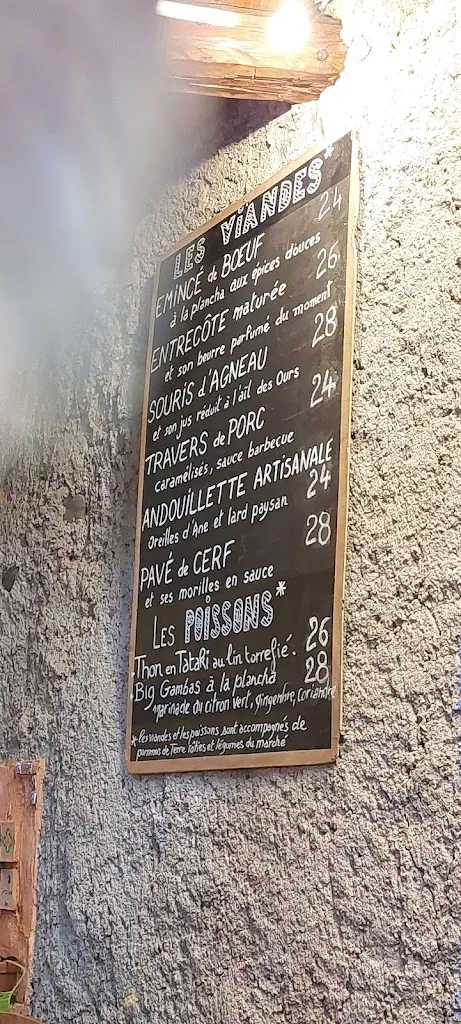 LES VIANDES*
EMINCÉ de BŒUF 24
à la plancha aux épices douces
ENTRECÔTE maturée 26
et son beurre parfumé du moment
SOURIS d'AGNEAU 28
et son jus réduit à l'ail des Ours
TRAVERS de PORC 24
caramélisés, sauce barbecue
ANDOUILLETTE ARTISANALE
Oreilles d'Ane et lard paysan 24
PAVÉ de CERF 28
et ses morilles en sauce
LES POISSONS*
Thon en Tataki au lin torréfié. 26
Big Gambas à la plancha 28
marinade au citron vert, gingembre, coriandre
*Les viandes et les poissons sont accompagnés de
pommes de Terre rôties et légumes du marché